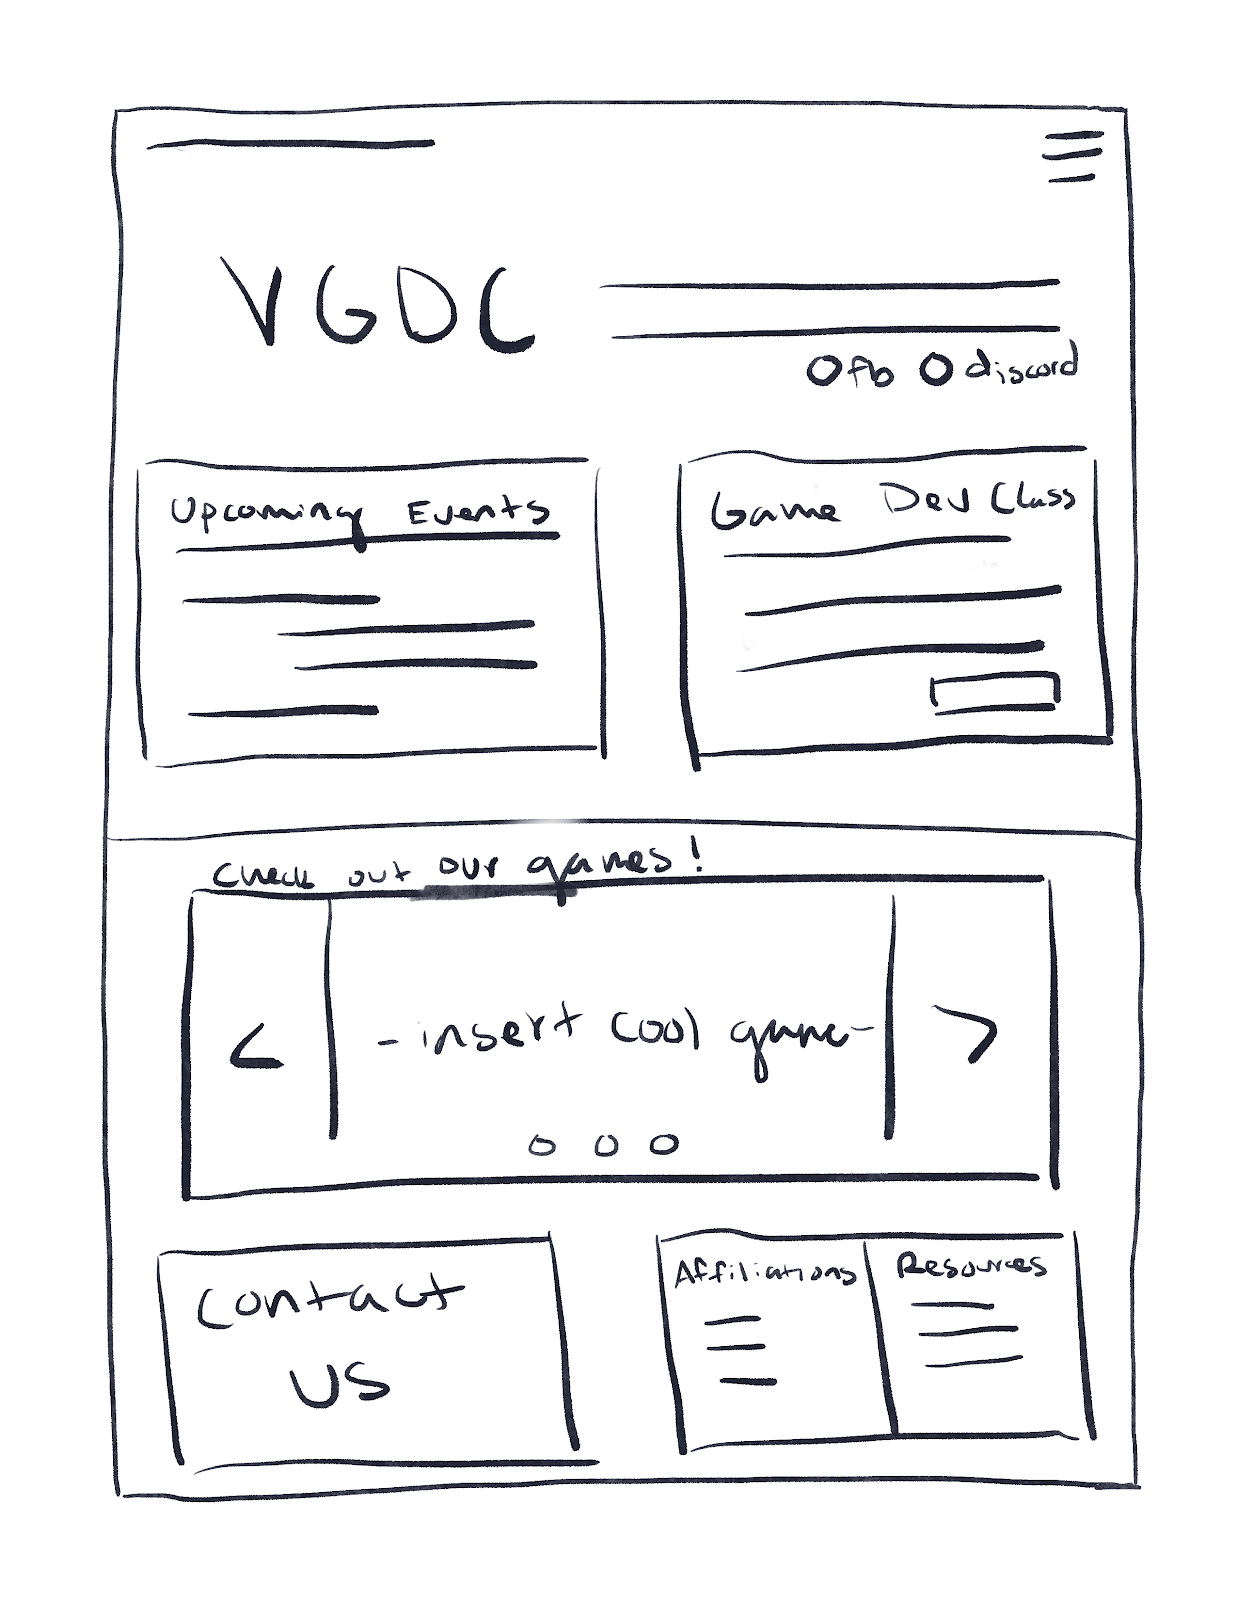 VGDC
fb discord
Upcoming Events
Game Dev Class
Check out our games!
<
-insert cool game-
>
Contact
us
Affiliations
Resources